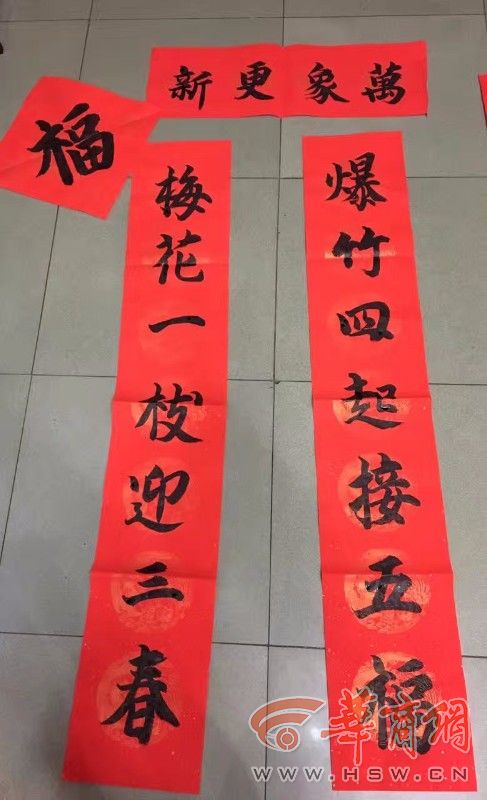 萬象更新
福
爆竹四起接五福
梅花一枝迎三春
華商網
WWW.HSW.CN